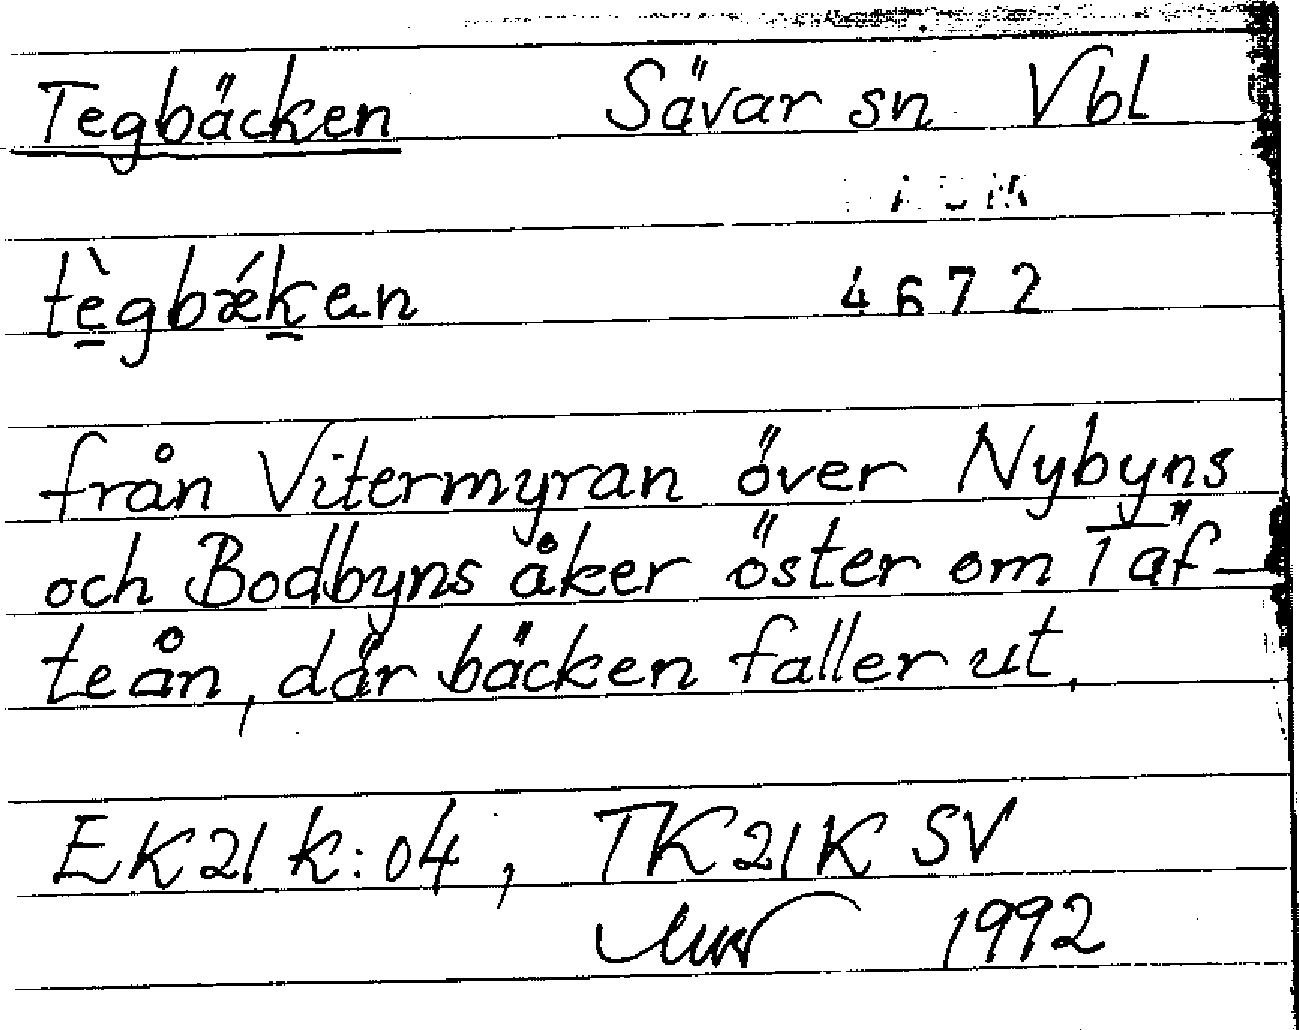 Tegbäcken Sävar sn Vbl
tè̱gbǽḵen 4672
från Vitermyran över Nybyns
och Bodbyns åker öster om Täf-
teån, där bäcken faller ut.
EK21k:04, TK21K SV
1992